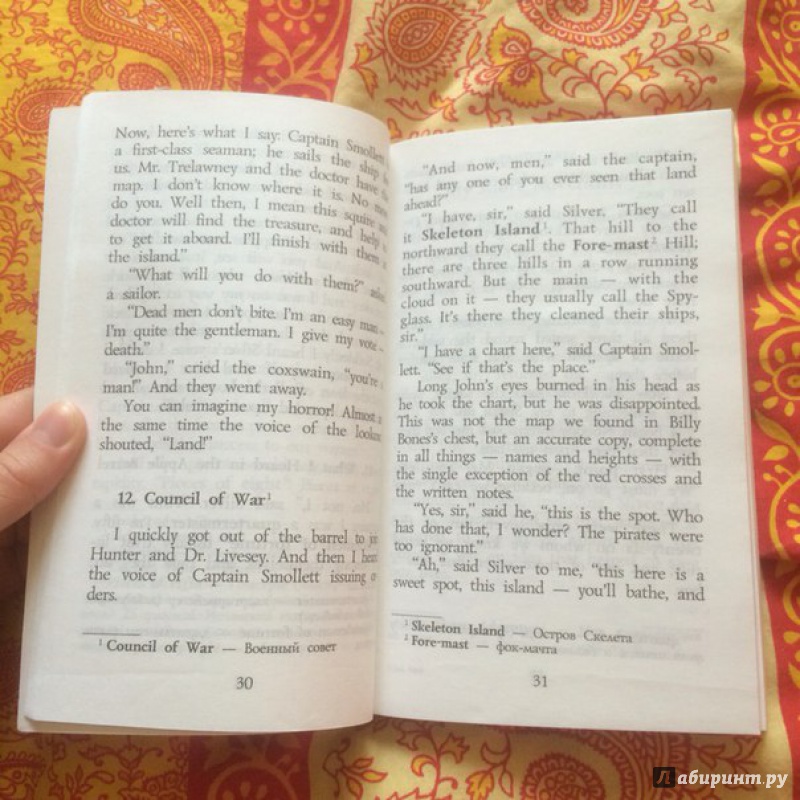 Now, here's what I say: Captain Smollett
a first-class seaman; he sails the ship
us. Mr. Trelawney and the doctor have the
map. I don't know where it is. No more
do you. Well then, I mean this squire and
doctor will find the treasure, and help
to get it aboard. I'll finish with them
the island."
"What will you do with them?" asked
a sailor.
"Dead men don't bite. I'm an easy man —
I'm quite the gentleman. I give my vote —
death."
"John," cried the coxswain, "you're
man!" And they went away.
You can imagine my horror! Almost
the same time the voice of the lookout
shouted, "Land!"
12. Council of War¹
I quickly got out of the barrel to join
Hunter and Dr. Livesey. And then I heard
the voice of Captain Smollett issuing or
ders.
¹ Council of War — Военный совет
30
"And now, men," said the captain,
"has any one of you ever seen that land
ahead?"
"I have, sir," said Silver, "They call
it Skeleton Island¹. That hill to the
northward they call the Fore-mast² Hill;
there are three hills in a row running
southward. But the main — with the
cloud on it — they usually call the Spy-
glass. It's there they cleaned their ships,
sir."
"I have a chart here," said Captain Smol-
lett. "See if that's the place."
Long John's eyes burned in his head as
he took the chart, but he was disappointed.
This was not the map we found in Billy
Bones's chest, but an accurate copy, complete
in all things — names and heights — with
the single exception of the red crosses and
the written notes.
"Yes, sir," said he, "this is the spot. Who
has done that, I wonder? The pirates were
too ignorant."
"Ah," said Silver to me, "this here is a
sweet spot, this island — you'll bathe, and
¹ Skeleton Island — Остров Скелета
² Fore-mast — фок-мачта
31
Лабиринт.ру